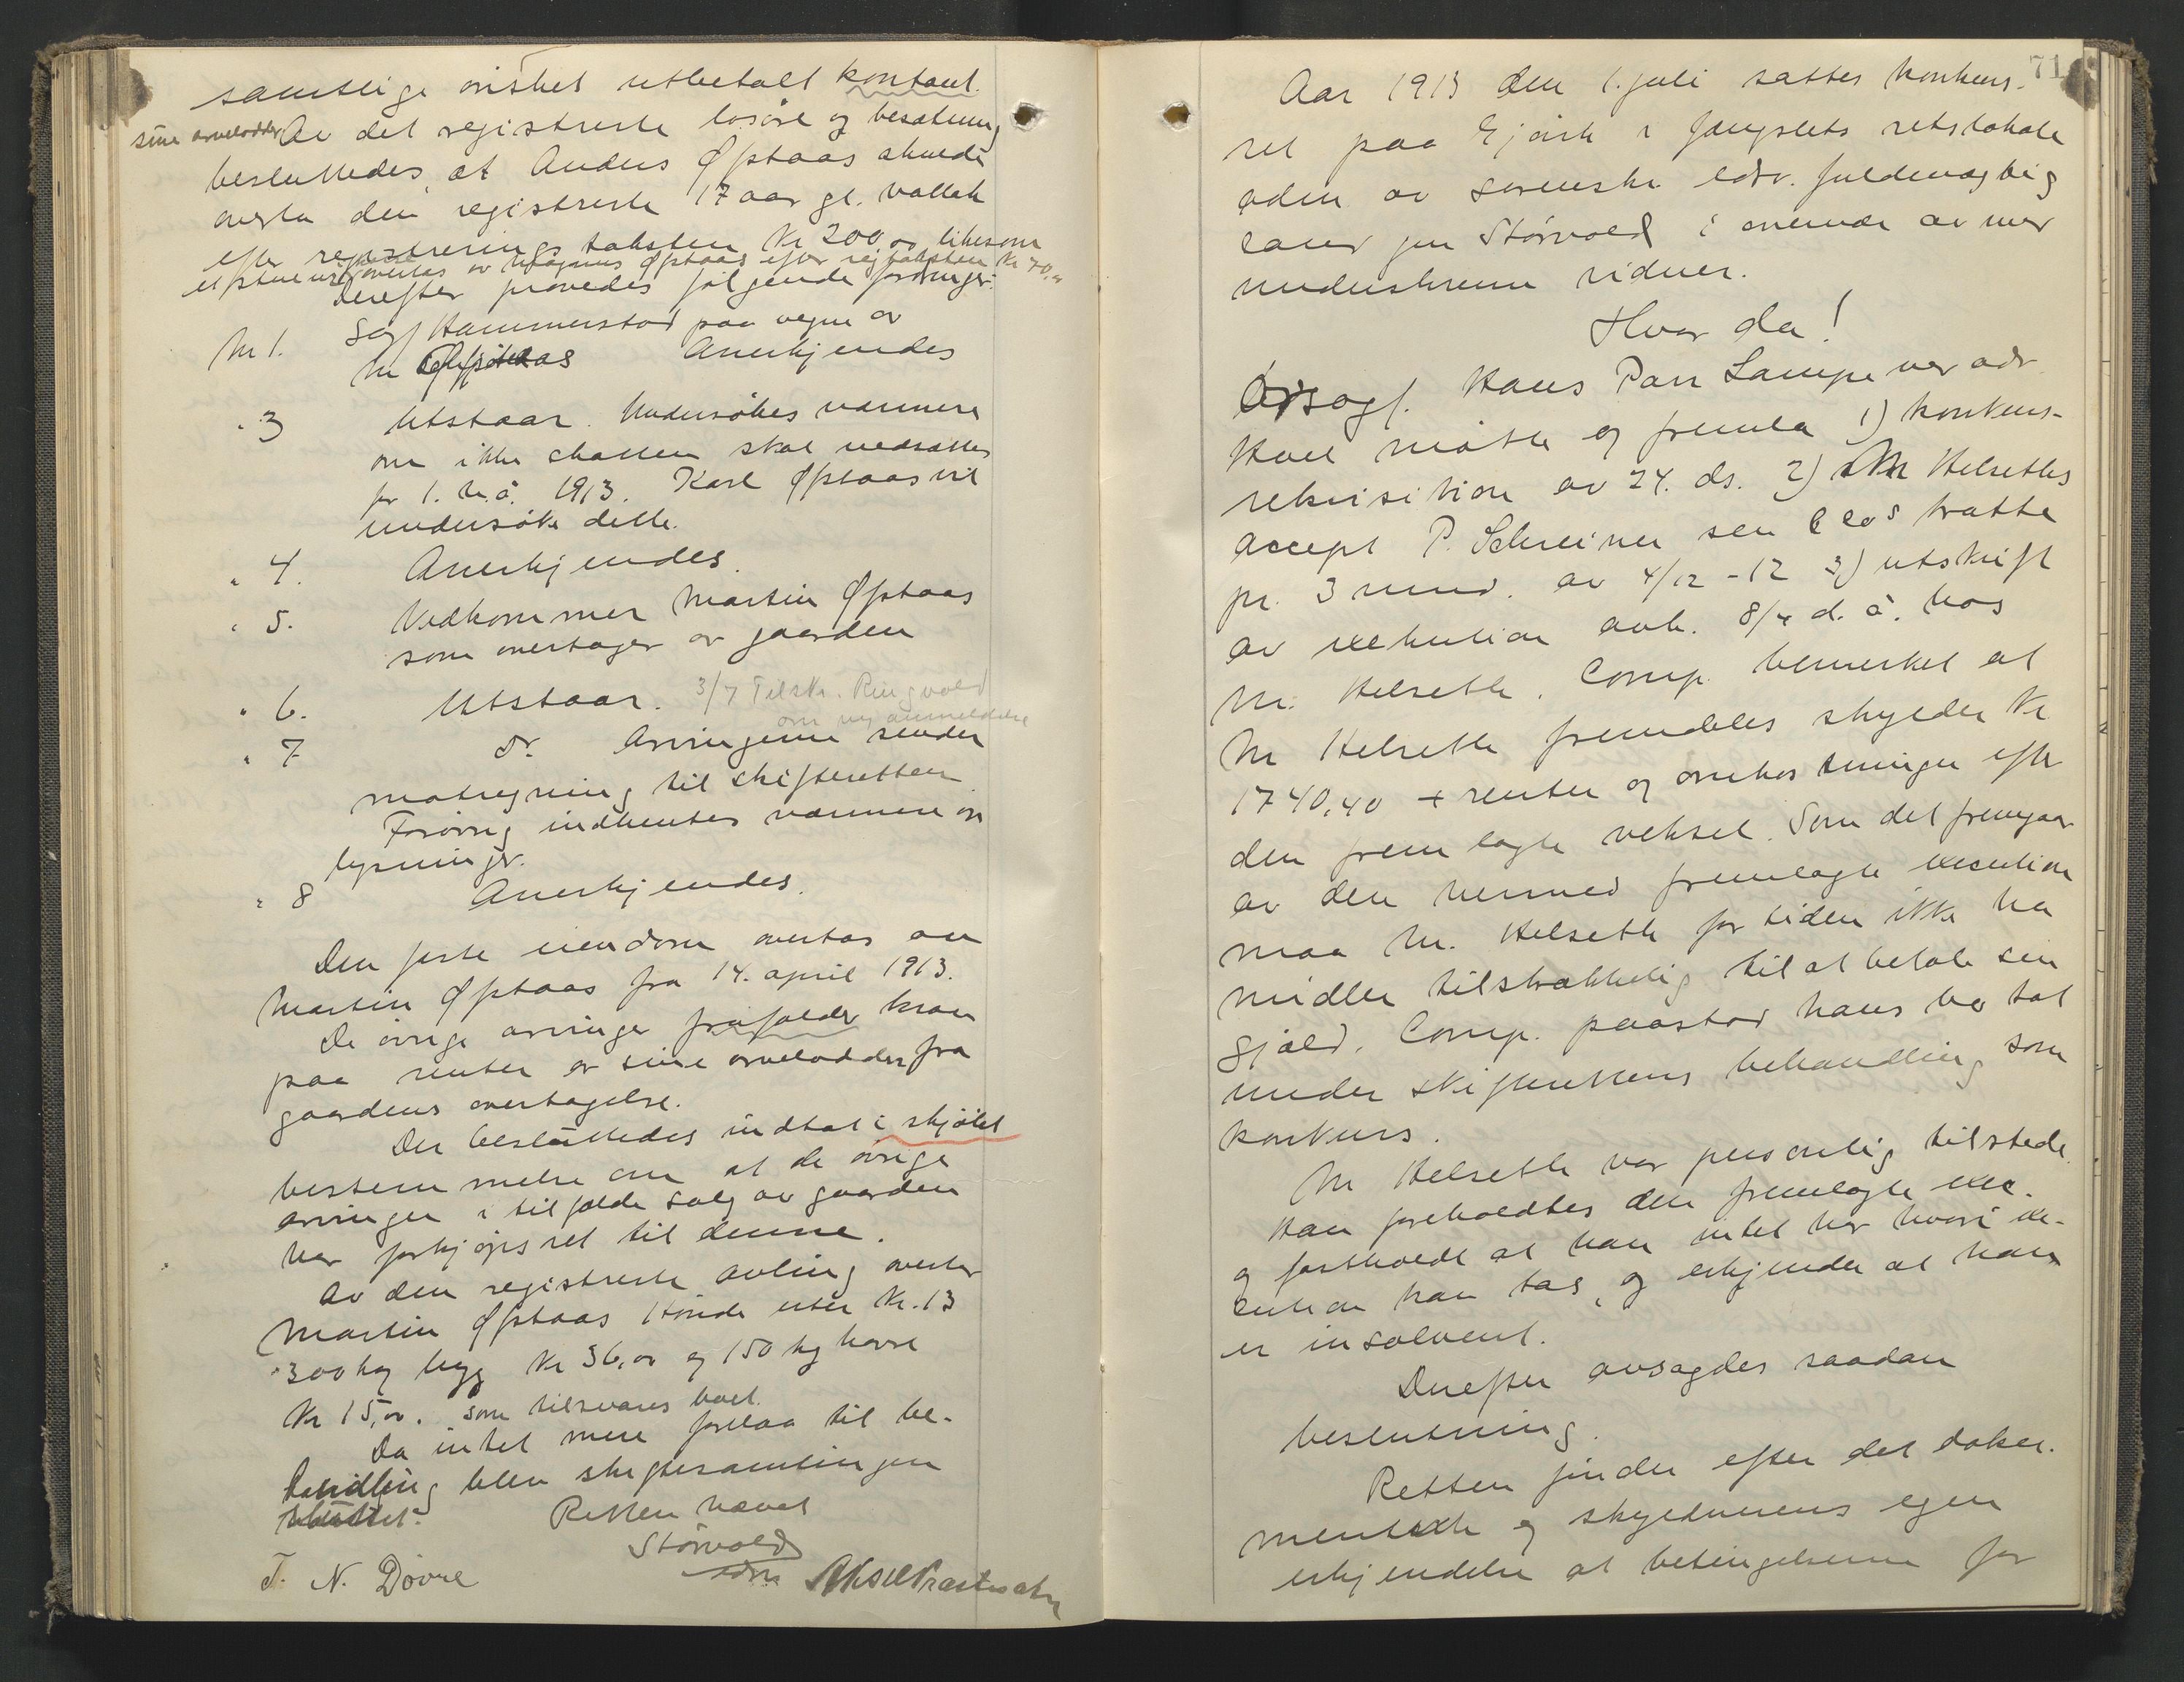 samtlige ønsket utbetalt kontant.
sine arvelodder Av det registrerte løsøre og besætning
besluttedes, at Anders Øfstaas skulde
overta den registrerte 17 aar gl. vallak
efter registreringstaksten Kr 200,00 likesom
overtas av Magnus Øfstaas efter regtaksten Kr 70,"
Derefter prøvedes følgende fordringer:
Nr 1. Sagf Hammerstad paa vegne av
M Anerkjendes
" 3 Utstaar. Undersøkes nærmere
om ikke skatten skal nedsættes
for 1. h. å. 1913. Karl Øfstaas vil
undersøke dette.
" 4. Anerkjendes.
" 5. Vedkommer Martin Øfstaas
som overtager av gaarden
" 6. Utstaar. 3/7 Tilskr. Ringvold
om ny anmeldelse
" 7 do. Arvingerne sender
motregning til skifteretten
Forøvrig indhentes nærmere op
lysninger.
" 8 Anerkjendes.
Den faste eiendom overtas av
Martin Øfstaas fra 14. april 1913.
De øvrige arvinger frafalder krav
paa renter av sine arvelodder fra
gaardens overtagelse.
Der besluttedes indtat i skjøtet
bestemmelse om at de øvrige
arvinger i tilfælde salg av gaarden
har forkjøpsret til denne.
Av den registrerte avling overtar
Martin Øfstaas 1 tønde erter Kr. 13
300 kg bygg Kr 36,00 og 150 kg havre
Kr 15,00. som tilsvares boet.
Da intet mere forelaa til be-
handling blev skiftesamlingen
sluttet. Retten hævet
Störvold
edsv.
T. N. Dövre Aksel Præstesæter
71
Aar 1913 den 1. juli sattes konkurs-
ret paa Gjøvik i fængslets retslokale
av sorenskr. edsv. fuldmægtig
cand jur Störvold i overvær av
underskrevne vidner.
Hvor da!
Orsagf. Hans Parr Lampe ver adv
Hoel møtte og fremla 1) konkurs-
rekvisition av 24. ds. 2) M Helseths
accept P. Schreiner sen & Co's tratte
pr. 3 mnd. av 4/12 - 12 3) utskrift
av exekution avh. 8/4 d. å. hos
M. Helseth. Comp. bemerket at
M Helseth fremdeles skylder Kr
1740,40 + renter og omkostninger efter
den fremlagte veksel. Som det fremgaar
av den hermed fremlagte execution
maa M. Helseth for tiden ikke ha
midler tilstrækkelig til at betale sin
gjæld. Comp. paastod hans bo tat
under skifterettens behandling som
konkurs.
M Helseth var personlig tilstede.
Han foreholdtes den fremlagte exe.
og fastholdt at han intet har hvori exe-
cution kan tas, og erkjender at han
er insolvent.
Derefter avsagdes saadan
beslutning.
Retten finder efter det doku-
menterte og skyldnerens egen
erkjendelse at betingelserne for